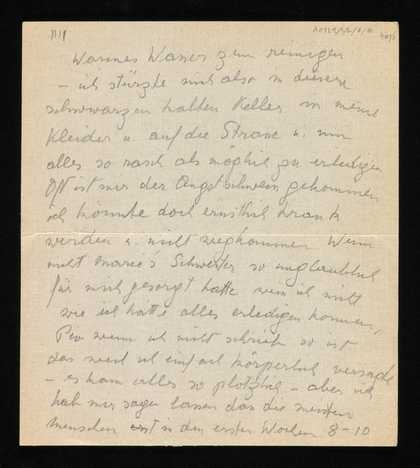 warmes Wasser zum reinigen
– ich stürzte mich also in diesem
schwarzen kalten Keller in meine
Kleider u. auf die Strasse u. nun
alles so rasch als möglich zu erledigen
Oft ist mir der Angstschweiss gekommen
ich könnte doch ernstlich krank
werden u. nicht wegkommen Wenn
nicht Marie's Schwester so unglaublich
für mich gesorgt hatte weis ich nicht
wie ich hatte alles erledigen können,
wenn ich nicht schrieb so ist
das weil ich einfach körperlich versagte
– es kam alles so plötzlich – aber ich
hab mir sagen lassen das die meisten
Menschen in den ersten Wochen 8–10